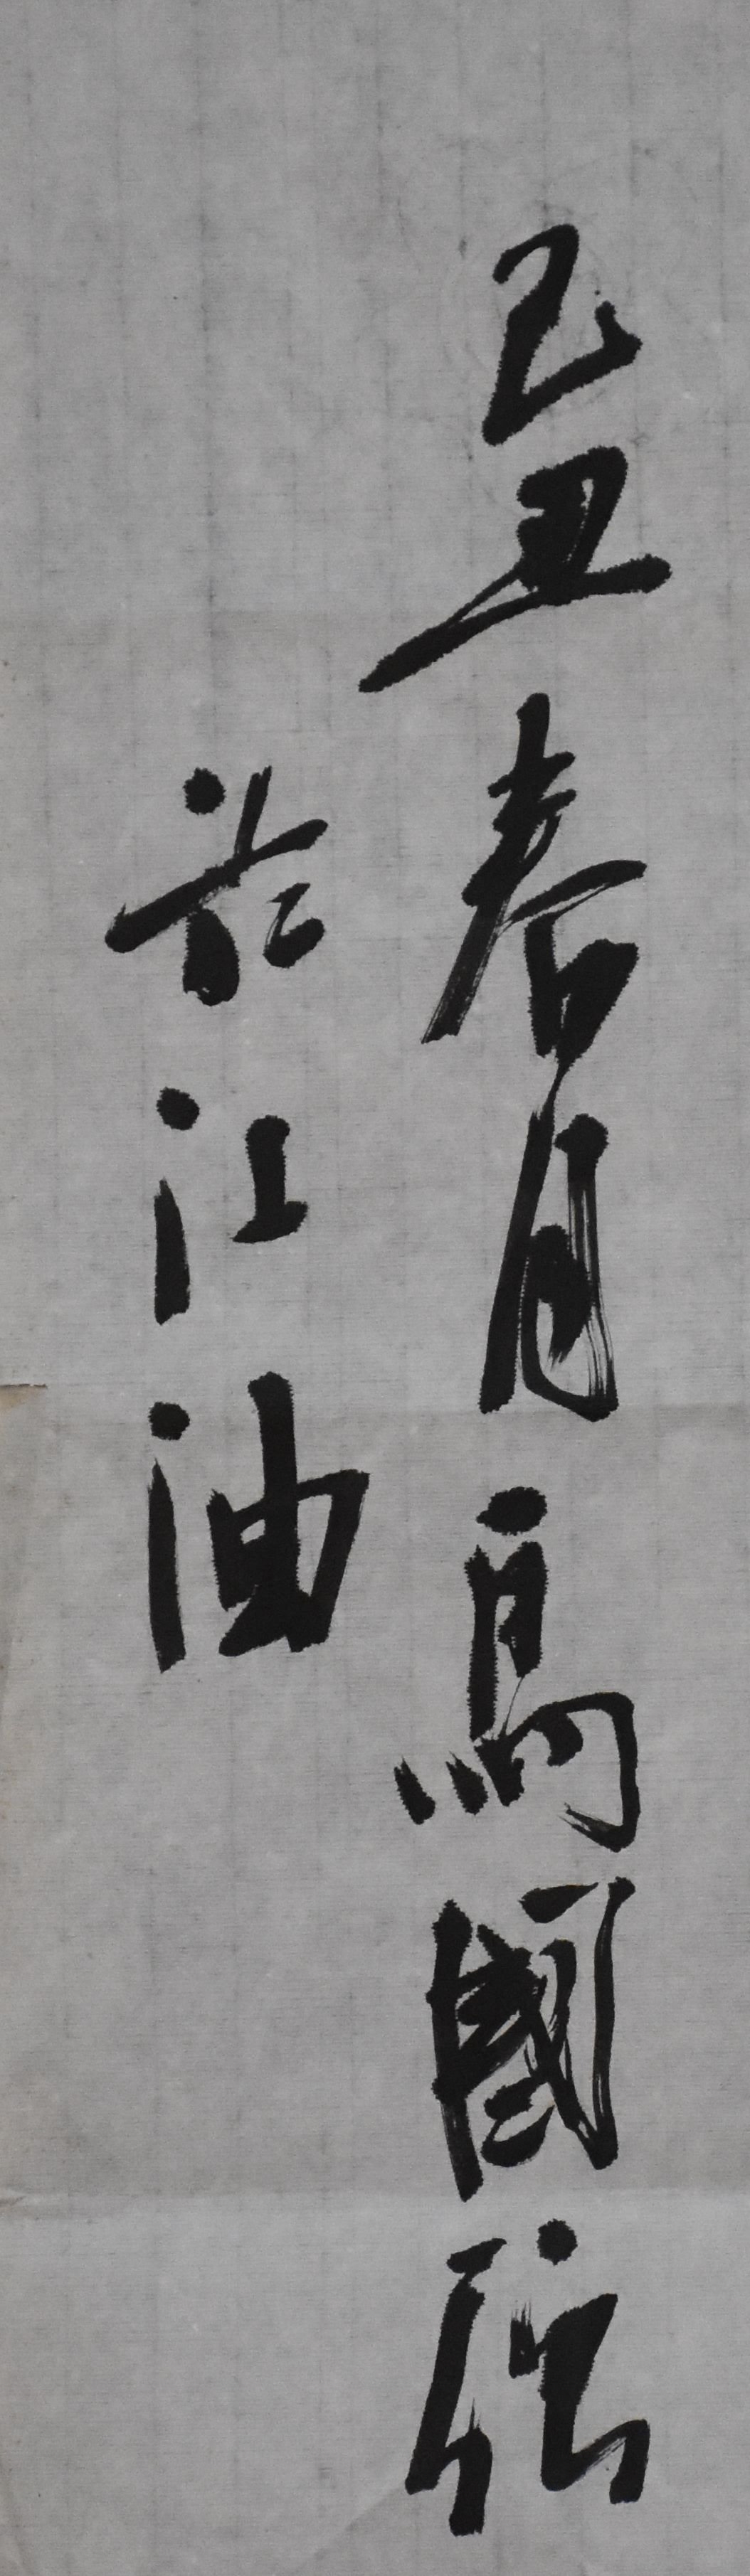 己丑春月馬國強
於江油